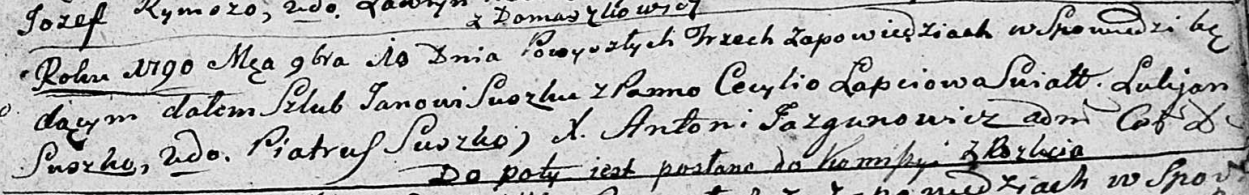 Jozef Rymszo, 2do.
z Domaszkowicz
Roku 1790 Mca 9bra 10 Dnia Po wyszłych Trzech Zapowiedziach w Spowiedzi bę
dącym dałem Szlub Janowi Suszku z Panno Cecylio Łapciowa Swiatt. Lukjan
Suszko, 2do. Piatruś Suszko, X. Antoni Jazgunowicz adm
Do poty jest posłano do Komisyi z
Zapowiedziach w Spow